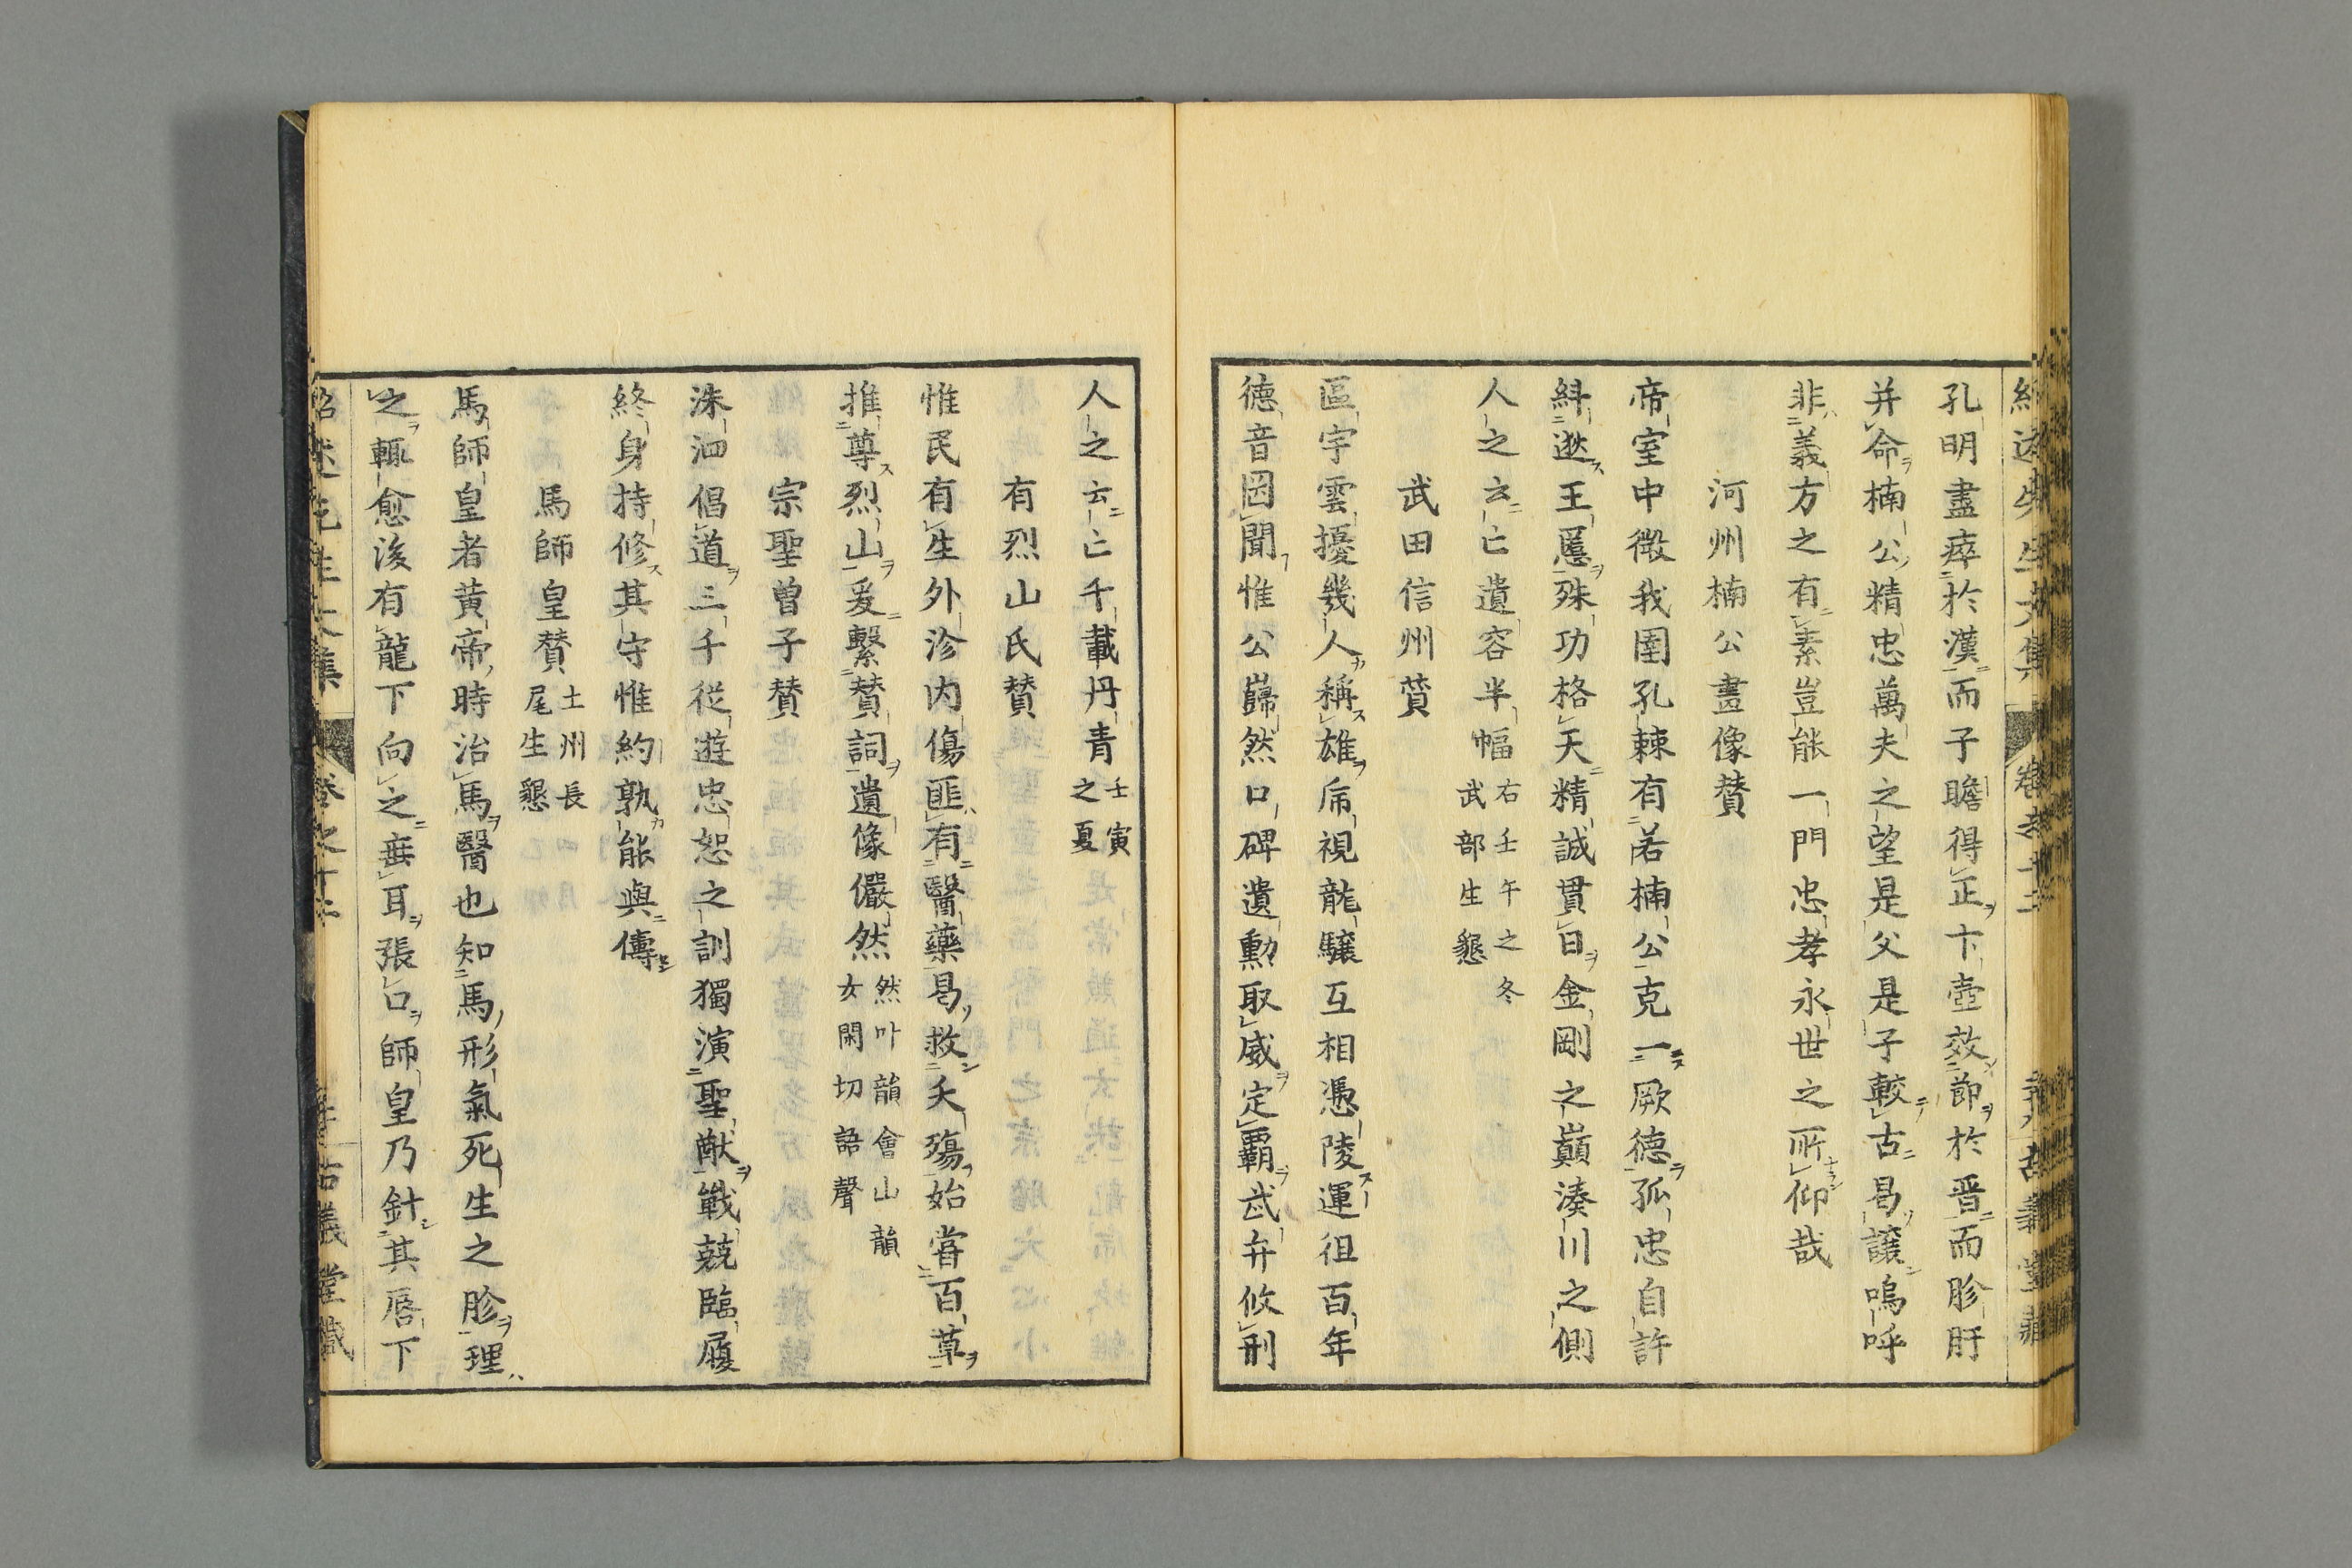 孔明盡瘁於漢而子瞻得正卞壺效節於晋而胗肝
并命楠公精忠萬夫之望是父是子較古曷讓嗚呼
非義方之有素豈能一門忠孝永世之所仰哉
河州楠公畫像賛
帝室中微我圉孔棘有若楠公克一厥德孤忠自許
糾逖王慝殊功格天精誠貫日金剛之巓湊川之側
人之云亡遺容半幅
右壬午之冬
武部生懇
武田信州賛
區宇雲擾幾人稱雄虎視龍驤互相憑陵運徂百年
德音罔聞惟公巋然口碑遺勳取威定覇武弁攸刑
人之云亡千載丹青
壬寅
之夏
有烈山氏賛
惟民有生外沴内傷匪有醫藥曷救夭殤始嘗百草
推尊烈山爰繫賛詞遺像儼然
然叶韻會山韻
女閑切語聲
宗聖曾子賛
洙泗倡道三千從遊忠恕之訓獨演聖猷戰兢臨履
終身持修其守惟約孰能與儔
馬師皇賛
土州長
尾生懇
馬師皇者黄帝時治馬醫也知馬形氣死生之胗理
之輒愈後有龍下向之垂耳張口師皇乃針其唇下
紹述先生文集
卷之十二
古義堂藏